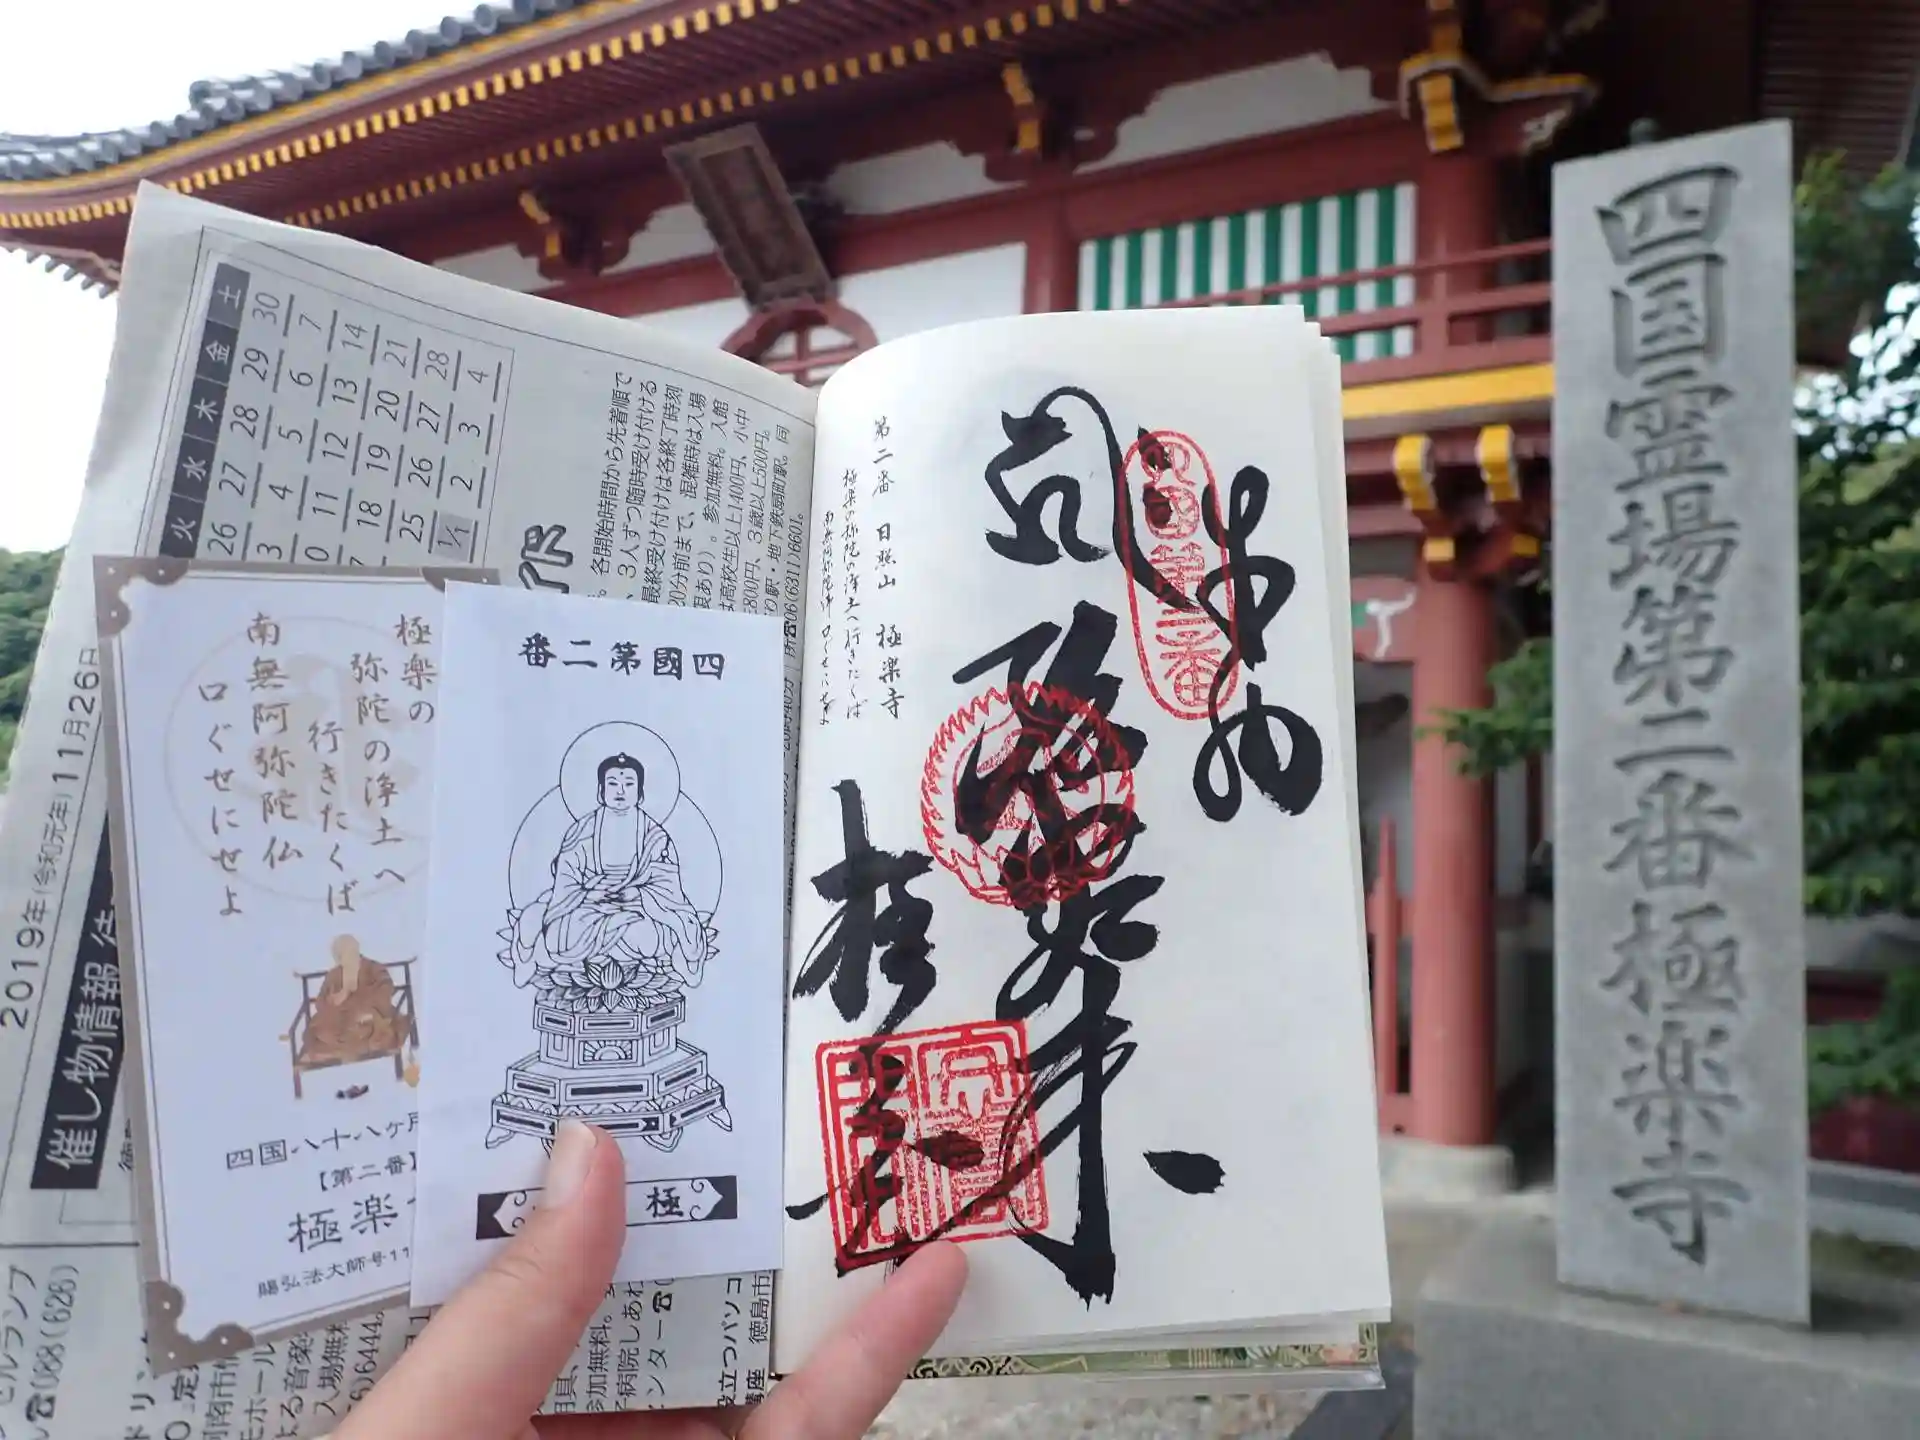 四国霊場第二番極楽寺
第二番 日照山 極楽寺
極楽の弥陀の浄土へ行きたくば
南無阿弥陀仏口ぐせにせよ
奉納
弥陀如来
極楽寺
四国第二番
四國第二番
極
極楽の
弥陀の浄土へ
行きたくば
南無阿弥陀仏
口ぐせにせよ
四国八十八ヶ
【第二番】
極楽
賜弘法大師号11
2019年(令和元年)11月26日
催し物情報
土
30
7
14
21
28
4
金
29
6
13
20
27
3
木
28
5
12
19
26
2
水
27
4
11
18
25
1/1
火
26
3
。各開始時間から先着順で
、3人ずつ随時受け付ける
最終受け付けは各終了時刻
20分前まで、混雑時は入場
限あり)。参加無料。入館
は高校生以上1400円、小中
800円、3歳以上500円。
所☎06(6311)6601。
☎088(626)
6444。
入場無料
河南市
モホール
よる音楽
参加無料。
病院しあわ
ンター☎
役立つパソコ
講座
徳島市